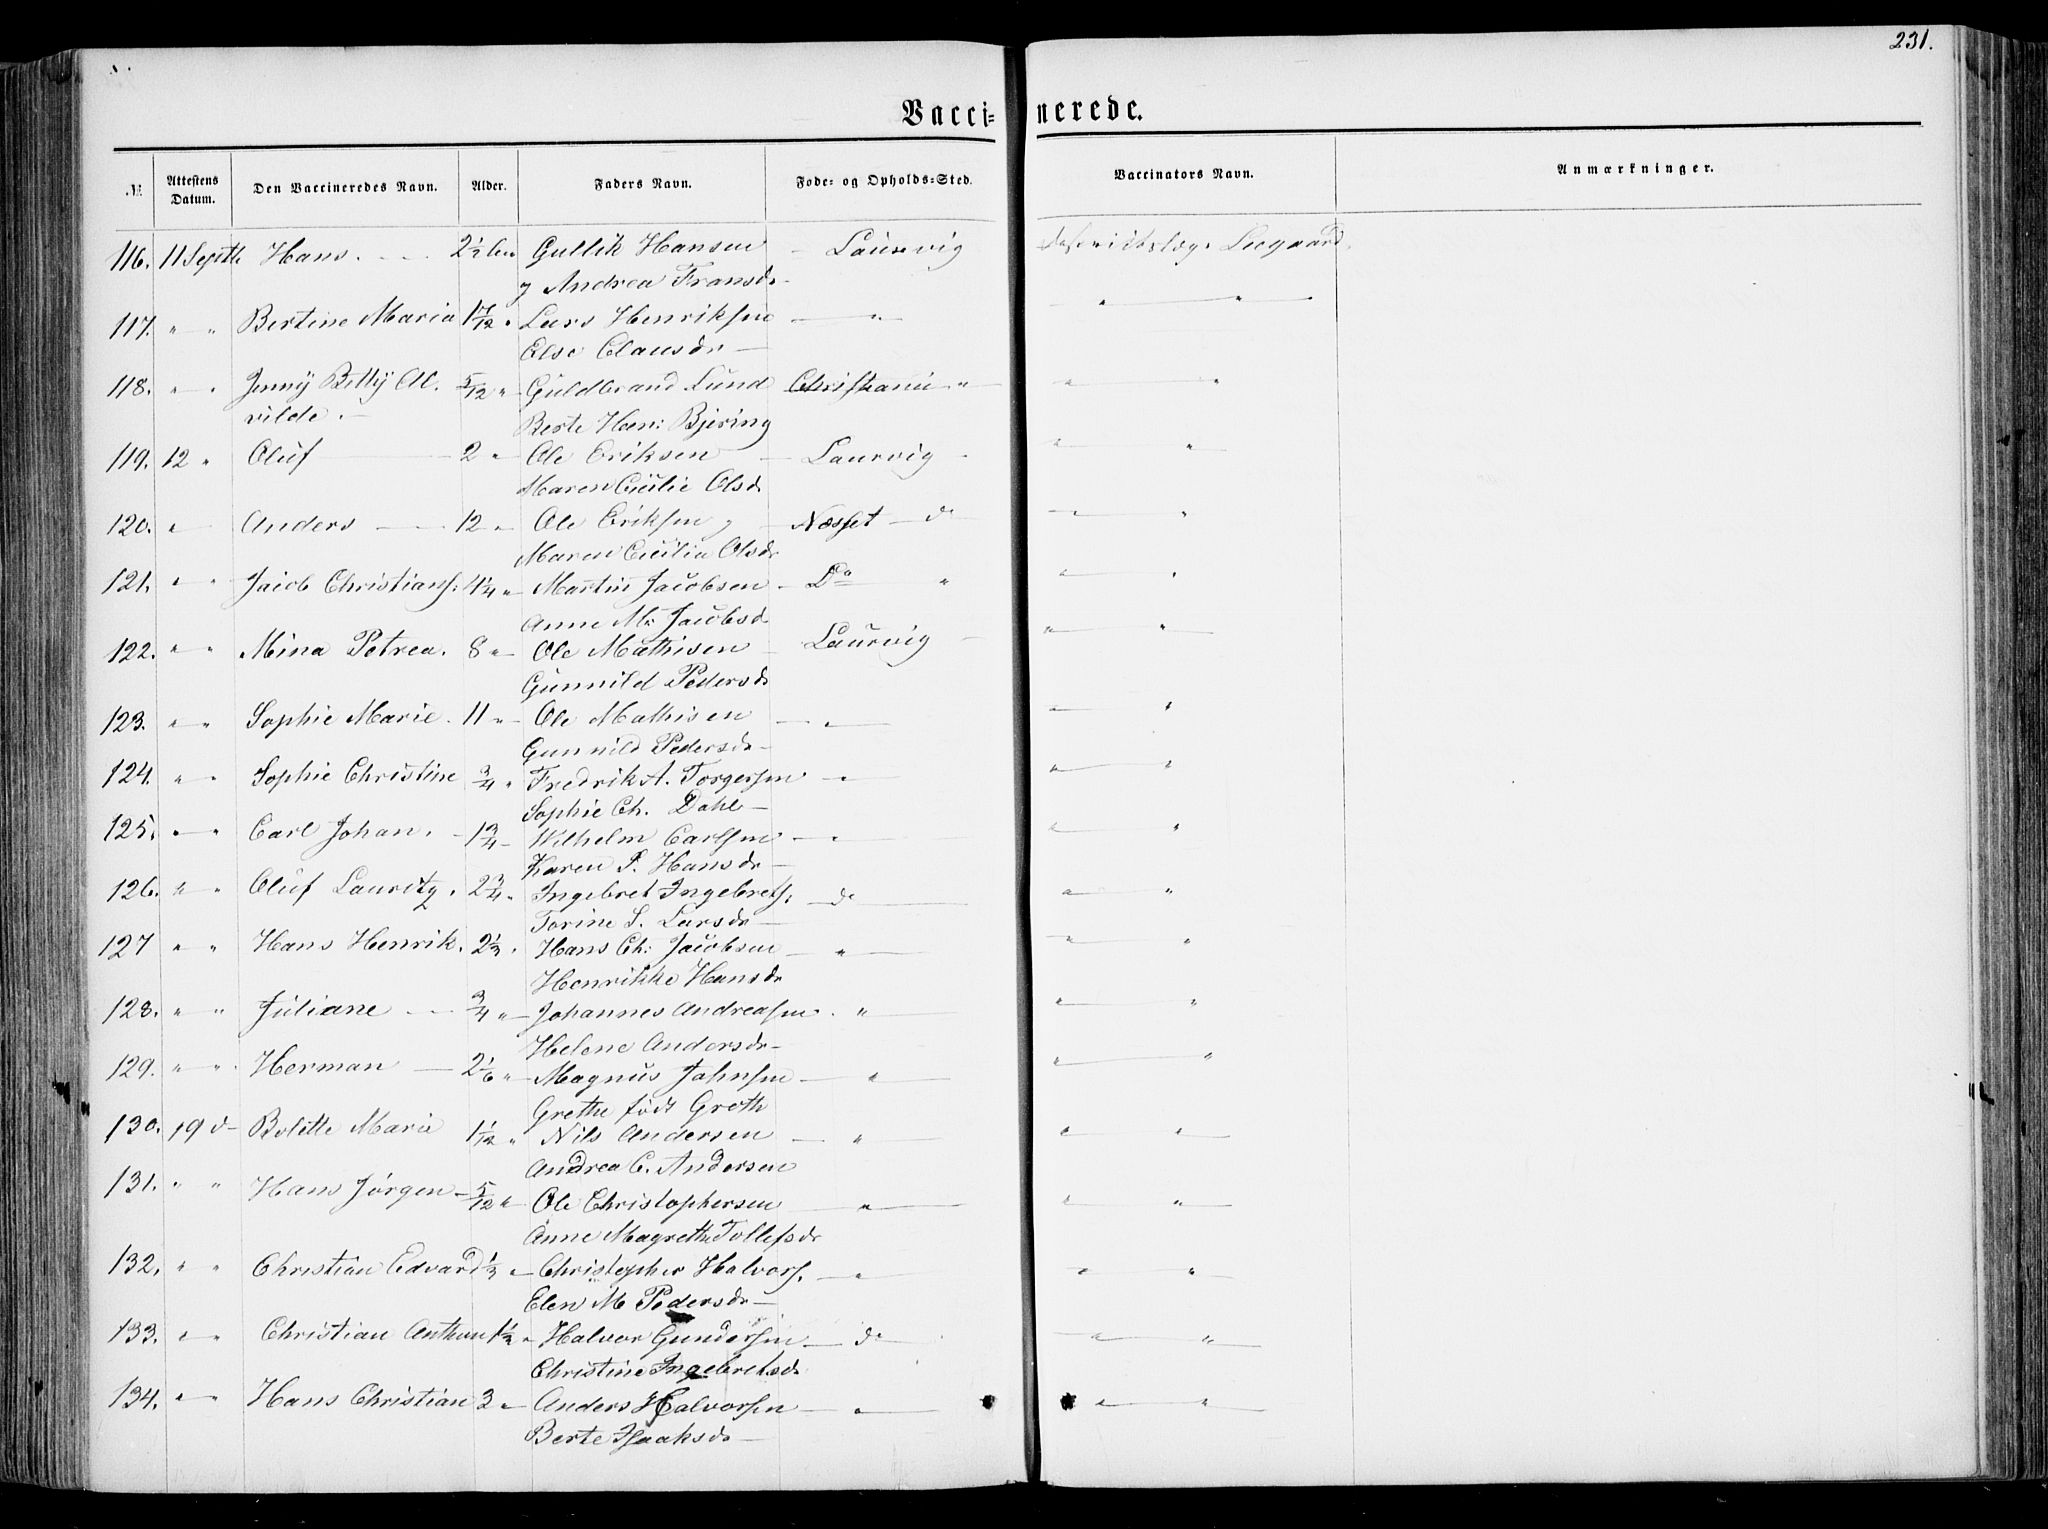 231.
Vacci- nerede.
№ Attestens Datum. Den Vaccineredes Navn. Alder. Faders Navn. Føde- og Opholds-Sted. Vaccinators Navn. Anmærkninger.
116. 11 Septb Hans. 2½ Gullik Hansen Laurvig Districtslæge Leegaard.
og Andrea Fransdr
117. " " Bertine Maria 1 7/12 " Lars Henriksen " " "
Else Clausdr
118. " " Jenny Betty Al. 5/12 " Guldbrand Lund Christiania " " "
vilde. Berte Han: Bjering
119. 12 " Oluf 2 " Ole Eriksen Laurvig " "
Maren Cicilie Olsd
120. " Anders 12 " Ole Eriksen Næsset do " "
Maren Cicilia Olsdr
121. " " Jacob Christians: 4¼ " Martin Jacobsen Do " " "
Anne M: Jacobsd
122. " " Mina Petrea. 8 " Ole Mathisen Laurvig " "
Gunnild Pedersd
123. " " Sophie Marie. 11 " Ole Mathisen " " "
Gunnild Pedersdr
124. " " Sophie Christine ¾ " Fredrik A. Torgersen " " "
Sophie Ch. Dahl
125. " " Carl Johan. 1¾ Wilhelm Carlsen " " "
Karen P. Hansdr
126. " " Oluf Lauritz. 2¾ " Ingebret Ingebrets. do " "
Torine S. Larsdr
127 " " Hans Henrik. 2⅓ " Hans Ch: Jacobsen " " "
Henrikke Hansdr
128. " " Juliane ¾ " Johannes Andreassen " " "
Helene Andersdr
129. " " Herman 2 1/6 " Magnus Johnsen " " "
Grethe født Groth
130. 19 d Bolitte Maria 1 1/12 " Nils Andersen " " "
Andrea C. Andersen
131. " " Hans Jørgen 5/12 " Ole Christophersen " " "
Anne Magrethe Tollefsdr
132. " " Christian Edvard ⅓ " Christopher Halvors. " " "
Elen M Pedersdr
133. " " Christian Anthon 1½ " Halvor Gundersen do " "
Christine Ingebretsdr
134. " " Hans Christian 3 " Anders Halvorsen " " "
Berte Isaksdr